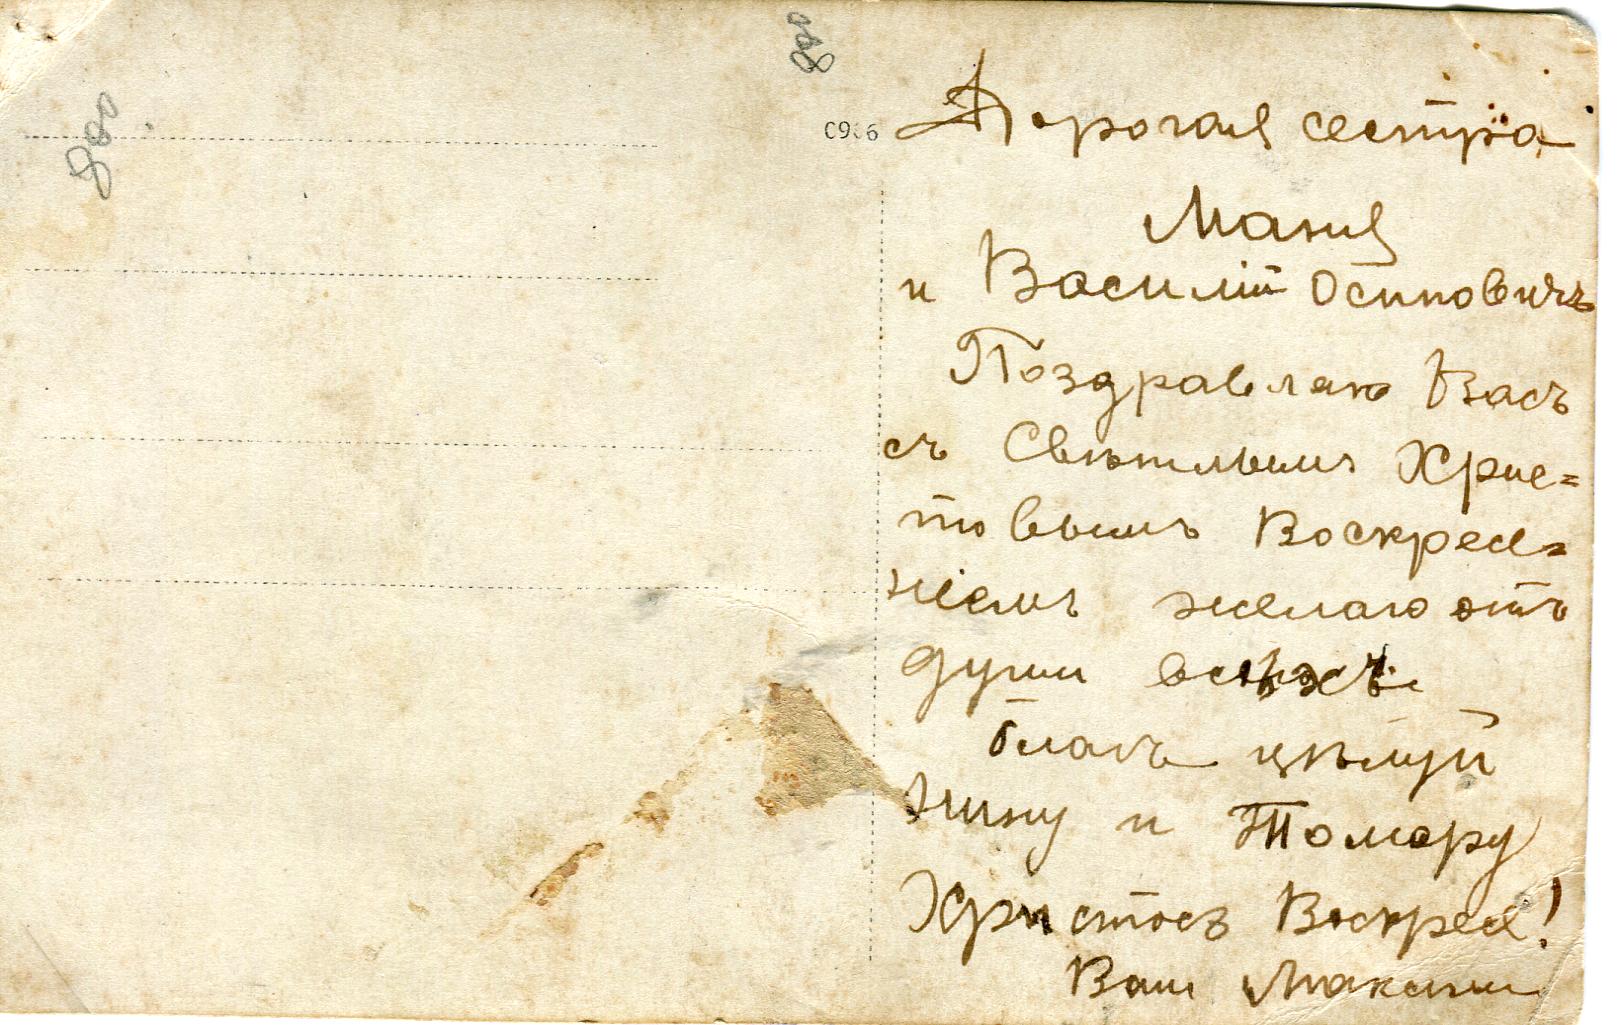 800
800
С966
Дорогая сестра
Маня
и Василiй Осиповичъ
Поздравляю Васъ
съ Свѣтлымъ Хрис=
товымъ Воскресе=
нiемъ желаю отъ
души всѣхъ
благъ цѣлуй
Нину и Томару
Христосъ Воскресе!
Ваш Максим